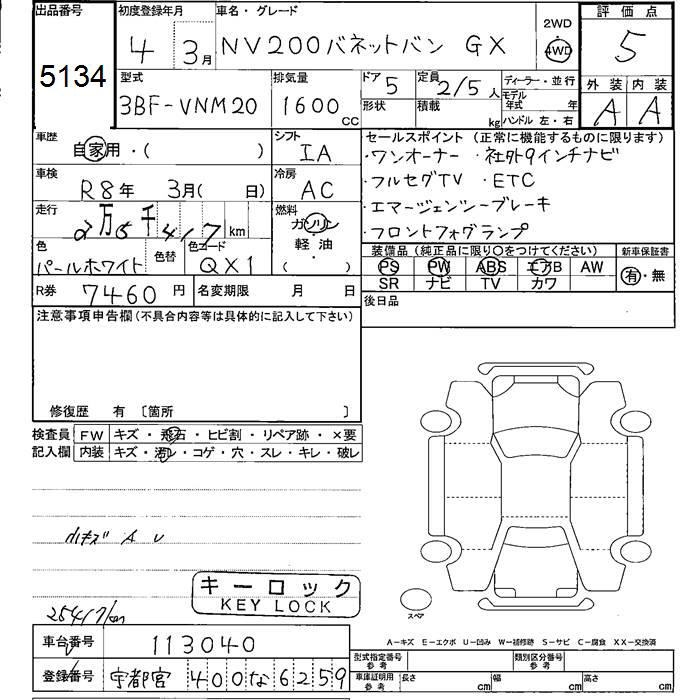 出品番号 初度登録年月 車名・グレード 2WD 評価点
5134 4 3月 NV200バネットバン GX 4WD 5
型式 排気量 ドア 5 定員 2/5人 ディーラー・並行 外装 内装
3BF-VNM20 1600cc 形状 積載 kg モデル年式 年 A A
ハンドル 左・右
車歴 自家用・( ) シフト IA セールスポイント (正常に機能するものに限ります)
・ワンオーナー ・社外9インチナビ
車検 R8年 3月( 日) 冷房 AC ・フルセグTV ・ETC
走行 2万5千417km 燃料 ガソリン ・エマージェンシーブレーキ
軽油 ・フロントフォグランプ
色 パールホワイト 色替 色コード QX1 ( )
装備品 (純正品に限り○をつけてください) 新車保証書
PS PW ABS エアB AW 有・無
SR ナビ TV カワ
R券 7460円 名変期限 月 日 後日品
注意事項申告欄(不具合内容等は具体的に記入して下さい)
修復歴 有 〔箇所 〕
検査員 FW キズ・飛石・ヒビ割・リペア跡・×要
記入欄 内装 キズ・汚レ・コゲ・穴・スレ・キレ・破レ
小キズ A U
キーロック
KEY LOCK
スペア
25417km
A-キズ E-エクボ U-凹み W-補修跡 S-サビ C-腐食 XX-交換済
車台番号 113040
型式指定番号 参考 類別区分番号 参考
登録番号 宇都宮 400な6259
車庫証明用 参考 長さ cm 幅 cm 高さ cm